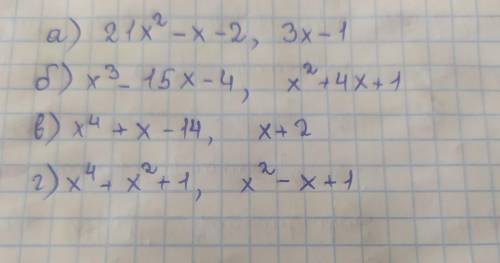 а) 21x² - x - 2, 3x - 1
б) x³ - 15x - 4, x² + 4x + 1
в) x⁴ + x - 14, x + 2
г) x⁴ + x² + 1, x² - x + 1